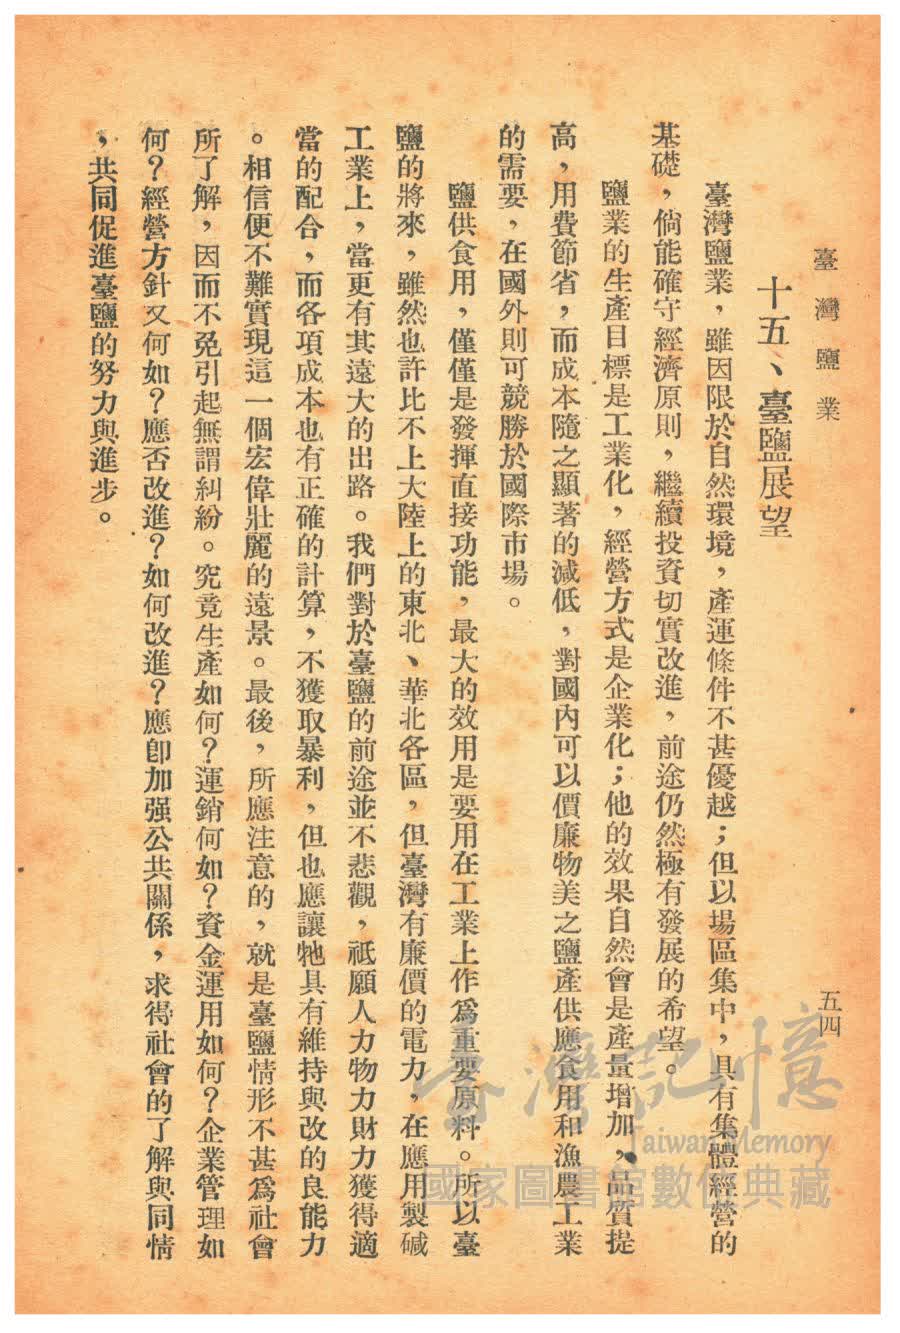 臺灣鹽業
五四
十五、臺鹽展望
臺灣鹽業，雖因限於自然環境，產運條件不甚優越；但以場區集中，具有集體經營的
基礎，倘能確守經濟原則，繼續投資切實改進，前途仍然極有發展的希望。
鹽業的生產目標是工業化，經營方式是企業化；他的效果自然會是產量增加，品質提
高，用費節省，而成本隨之顯著的減低，對國內可以價廉物美之鹽產供應食用和漁農工業
的需要，在國外則可競勝於國際市場。
鹽供食用，僅僅是發揮直接功能，最大的效用是要用在工業上作爲重要原料。所以臺
鹽的將來，雖然也許比不上大陸上的東北、華北各區，但臺灣有廉價的電力，在應用製碱
工業上，當更有其遠大的出路。我們對於臺鹽的前途並不悲觀，祗願人力物力財力獲得適
當的配合，而各項成本也有正確的計算，不獲取暴利，但也應讓牠具有維持與改的良能力
。相信便不難實現這一個宏偉壯麗的遠景。最後，所應注意的，就是臺鹽情形不甚爲社會
所了解，因而不免引起無謂糾紛。究竟生產如何？運銷何如？資金運用如何？企業管理如
何？經營方針又何如？應否改進？如何改進？應卽加强公共關係，求得社會的了解與同情
，共同促進臺鹽的努力與進步。
臺灣記憶
Taiwan Memory
國家圖書館數位典藏